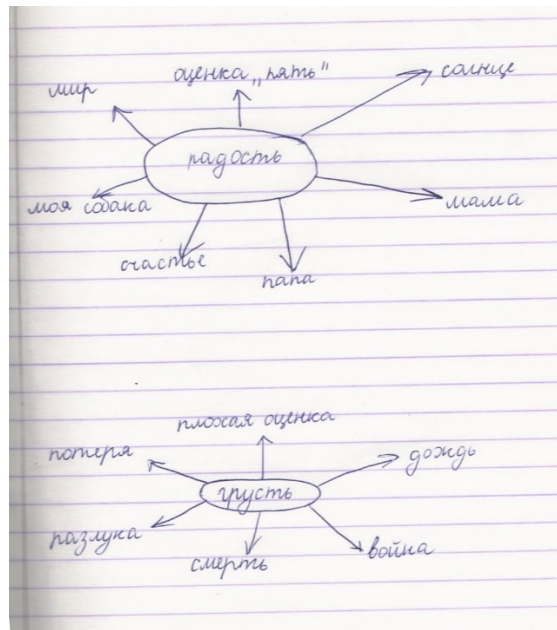 оценка „пять"
солнце
мир
радость
моя собака
мама
счастье
папа
плохая оценка
потеря
дождь
грусть
разлука
война
смерть